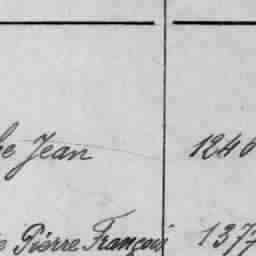 Jean 1246
Pierre François 1377